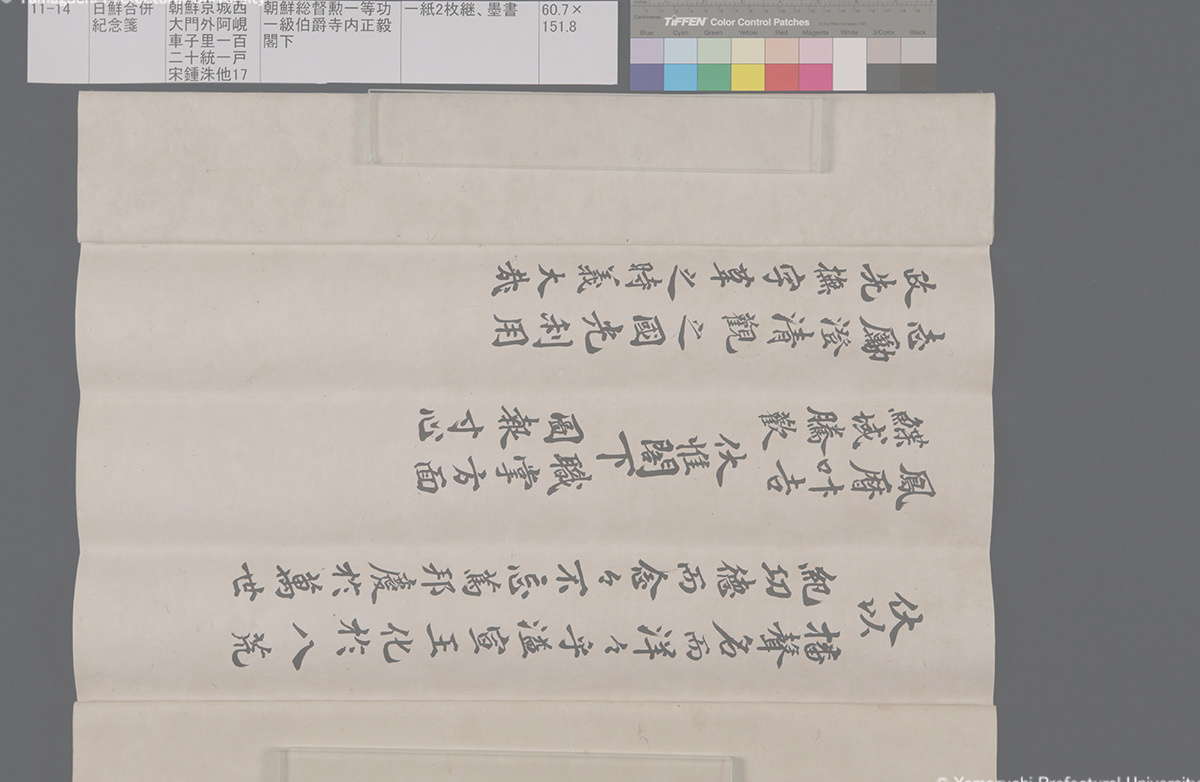 11-14
日鮮合併
紀念箋
朝鮮京城西
大門外阿峴
車子里一百
二十統一戸
宋鍾洙他17
朝鮮総督勲一等功
一級伯爵寺内正毅
閣下
一紙2枚継、墨書
60.7×
151.8
TIFFEN Color Control Patches
Blue Cyan Green Yellow Red Magenta White 3/Color Black
伏以
播聲名而洋々乎溢宣王化於八荒
紀功德而念々不忘篤邦慶於萬世
鳳曆叶吉
鰈域騰歡
伏惟閣下
職掌方面
圖報寸心
志勵澄清觀之國光利用
政先撫字革之時義大哉
© Yamaguchi Prefectural University